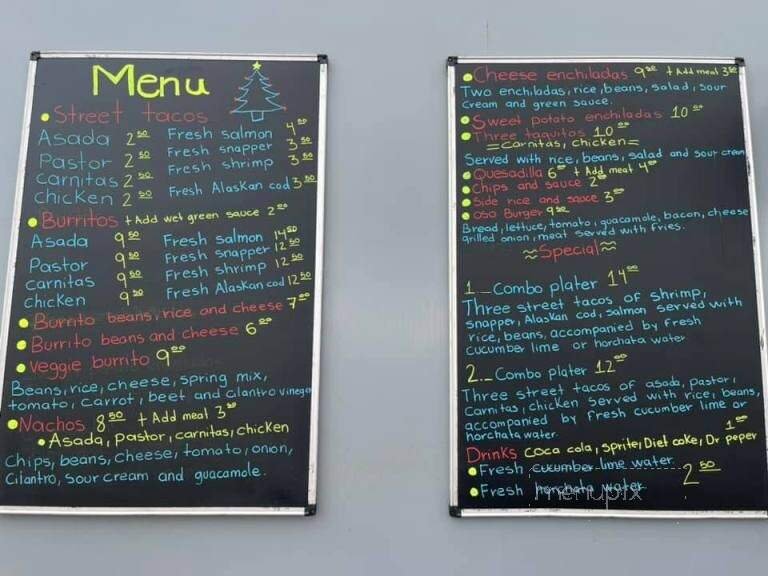 Menu
Street tacos
Asada 2 50 Fresh salmon 4 50
Pastor 2 50 Fresh snapper 3 50
Carnitas 2 50 Fresh shrimp 3 50
chicken 2 50 Fresh Alaskan cod 3 50
Burritos + Add wet green sauce 2 00
Asada 9 50 Fresh salmon 14 50
Pastor 9 50 Fresh snapper 12 50
carnitas 9 50 Fresh shrimp 12 50
chicken 9 50 Fresh Alaskan cod 12 50
Burrito beans, rice and cheese 7 00
Burrito beans and cheese 6 00
Veggie burrito 9 00
Beans, rice, cheese, spring mix,
tomato, carrot, beet and cilantro vineger
Nachos 8 50 + Add meal 3 50
Asada, Pastor, carnitas, chicken
Chips, beans, cheese, tomato, onion,
Cilantro, sour cream and guacamole.
Cheese enchiladas 9 50 + Add meal 3 50
Two enchiladas, rice, beans, salad, sour
cream and green sauce.
Sweet potato enchiladas 10 00
Three taquitos 10 00
=Carnitas, Chicken=
Served with rice, beans, salad and sour cream
Quesadilla 6 00 + Add meat 4 00
Chips and sauce 2 00
Side rice and sauce 3 00
oso Burger 9 50
Bread, lettuce, tomato, guacamole, bacon, cheese
grilled onion, meat served with fries.
≈Special≈
1._ Combo plater 14 00
Three street tacos of shrimp,
snapper, Alaskan cod, salmon served with
rice, beans, accompanied by fresh
cucumber lime or horchata water
2._ Combo plater 12 00
Three street tacos of asada, pastor,
Carnitas, chicken served with rice, beans,
accompanied by fresh cucumber lime or
horchata water.
Drinks coca cola, sprite, Diet coke, Dr peper 1 00
Fresh cucumber lime water
Fresh horchata water 2 50
menupix